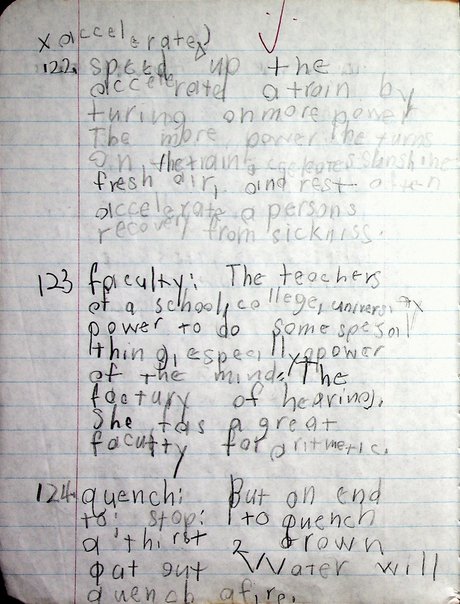 x accelerate)
122. speed up the
accelerated a train by
turing on more power
The more power he turns
on, the train accelerates Sunshine
fresh air, and rest often
accelerate a persons
recovery from sickniss.
123 faculty: The teachers
of a school, college, university
power to do some spesal
thing, especilly a power
of the mind: The
factury of hearing.
She has a great
faculty for aritmetic.
124. quench: But an end
to: stop: 1 to quench
a thirst 2 drown
out Water will
quench a fire.